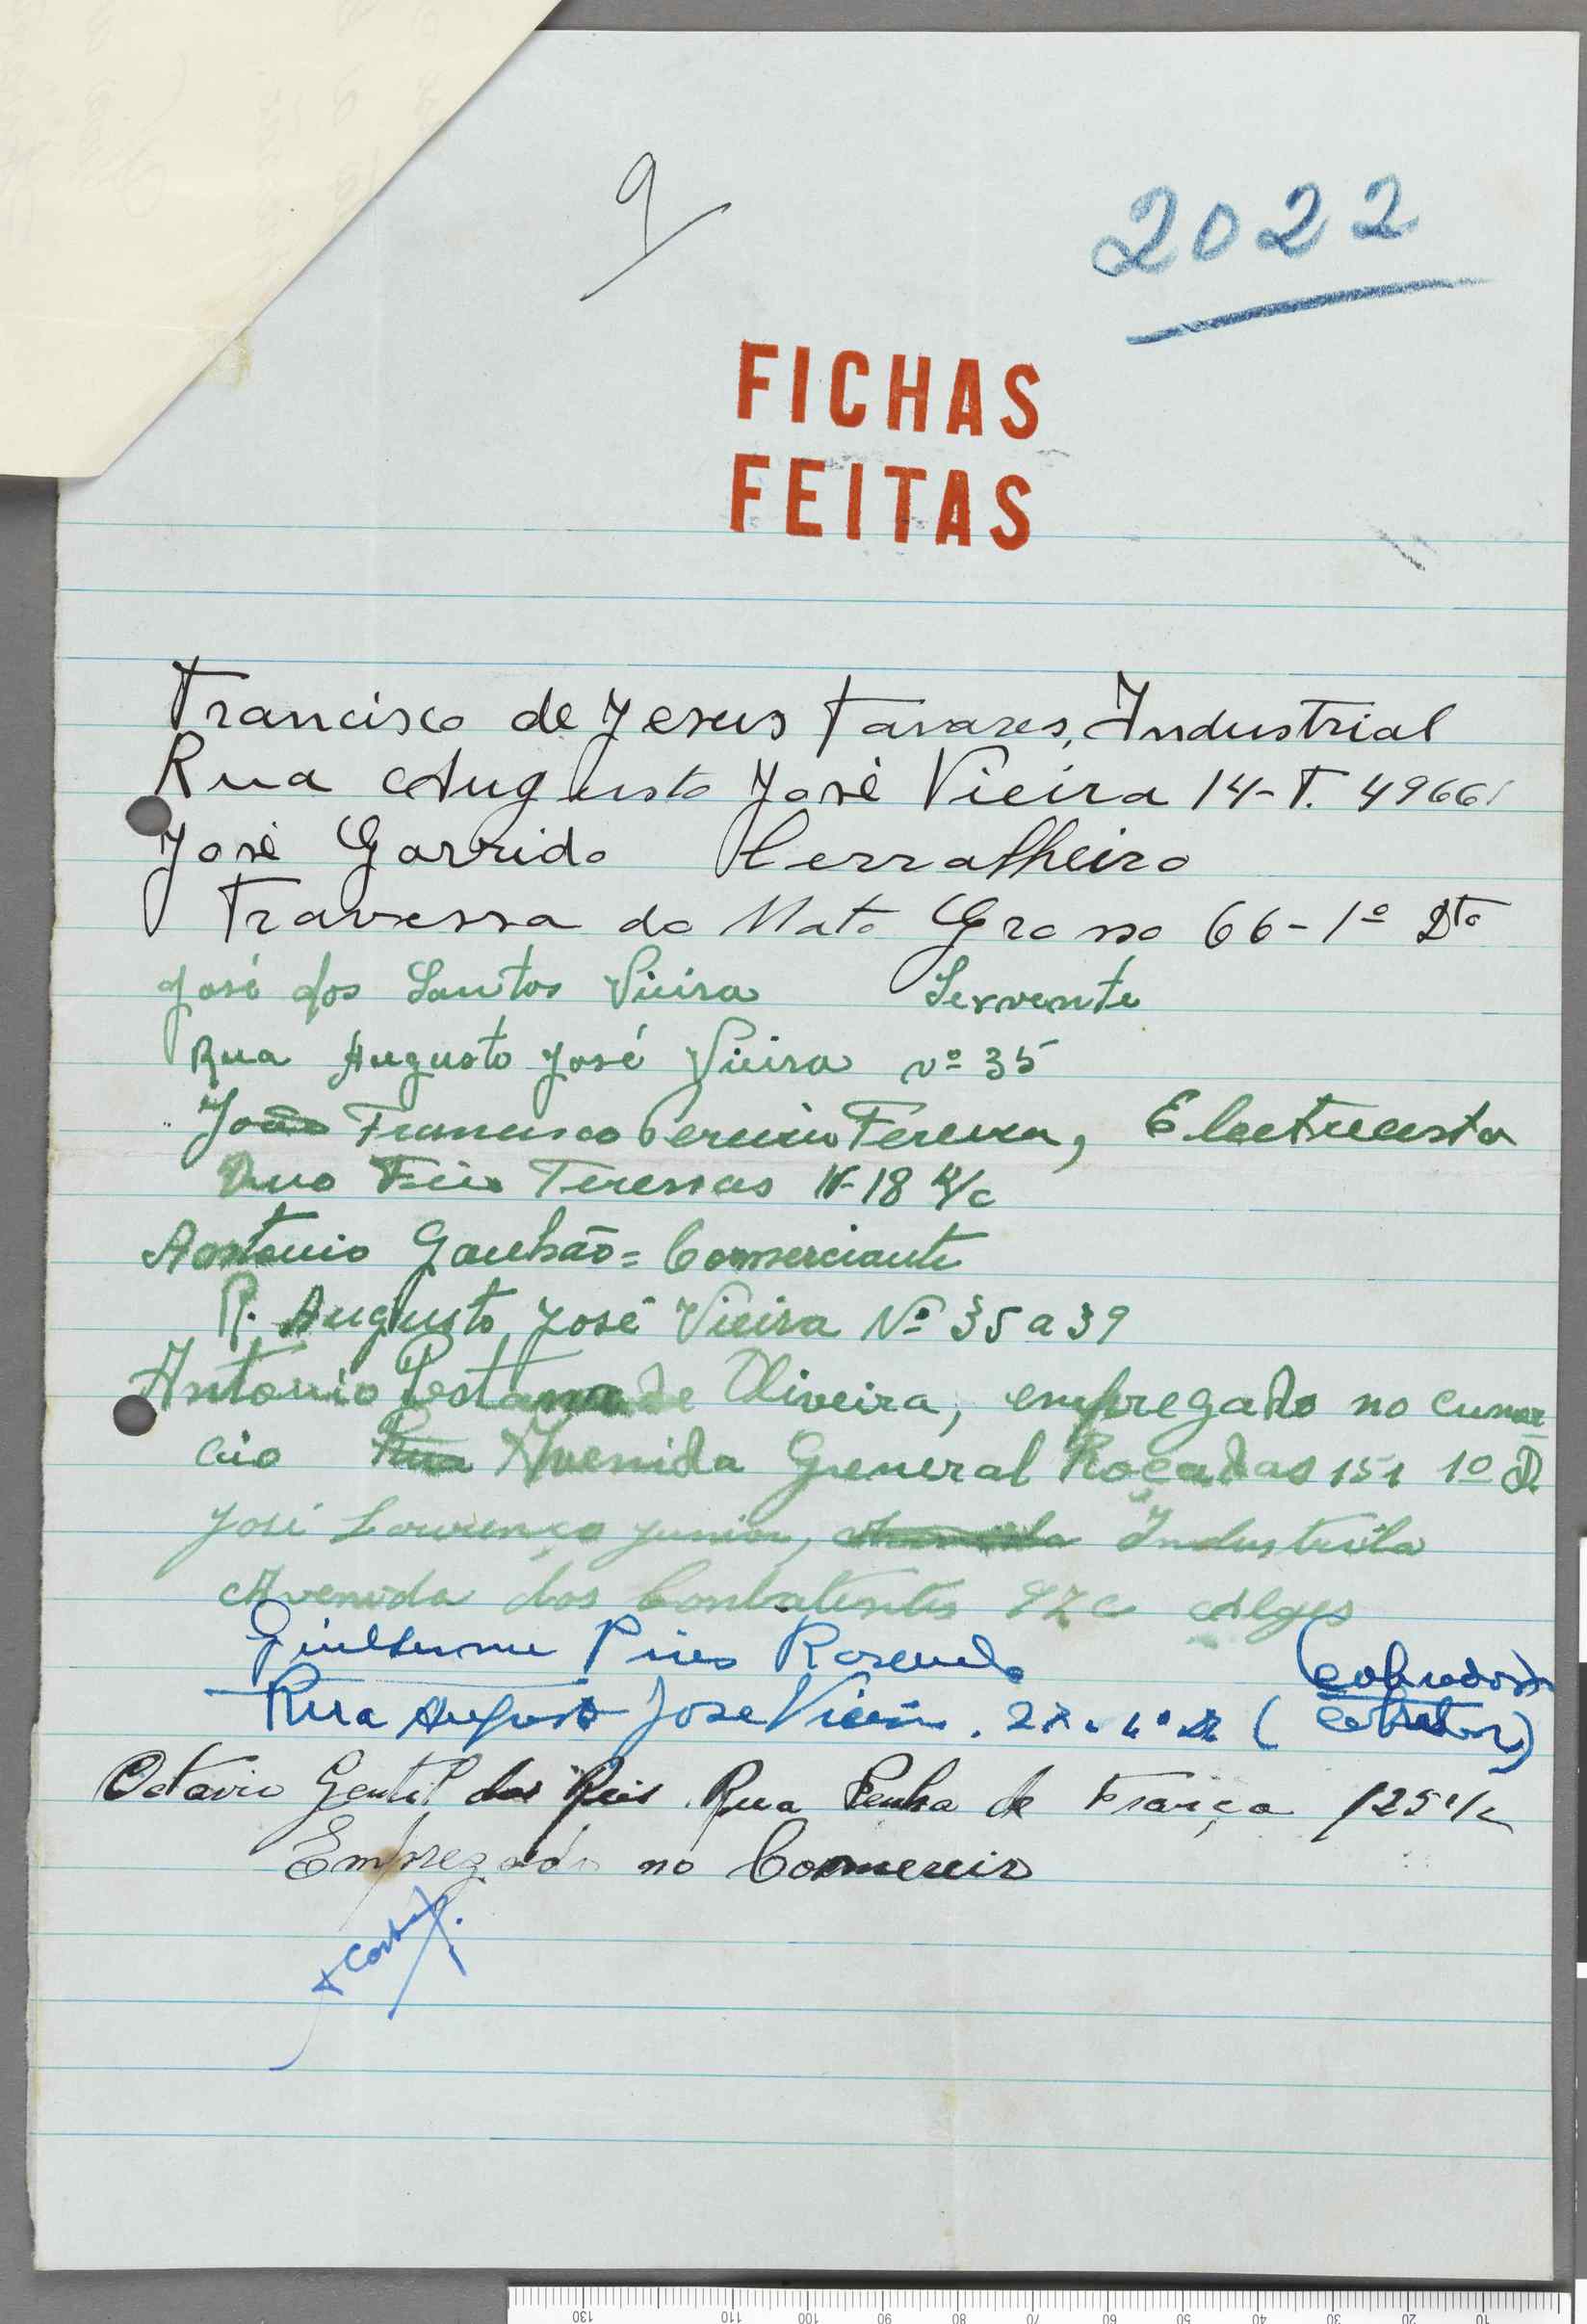 9
2022
FICHAS
FEITAS
Francisco de Jesus Tavares, Industrial
Rua Augusto José Vieira 14-T. 49661
José Garrido Cerralheiro
Travessa do Mato Grosso 66-1º Dto
José dos Santos Vieira Servente
Rua Augusto José Vieira nº 35
Francisco Pereira Electricista
Teressas Nº 18 R/c
Antonio Ganhão = Comerciante
R. Augusto José Vieira Nº 35 a 39
Antonio Pestana de Oliveira, empregado no cumer
cio Rua Avenida General Roçadas 151 1º D
José Lourenço Junior, Industrila
Avenida dos Conbatentes Alges
Guilherme Pires (cobrador
Rua Augusto Jose Vieira
Octavio Gentil dos Reis. Rua Penha de França 125 r/c
Empregado no Comercio